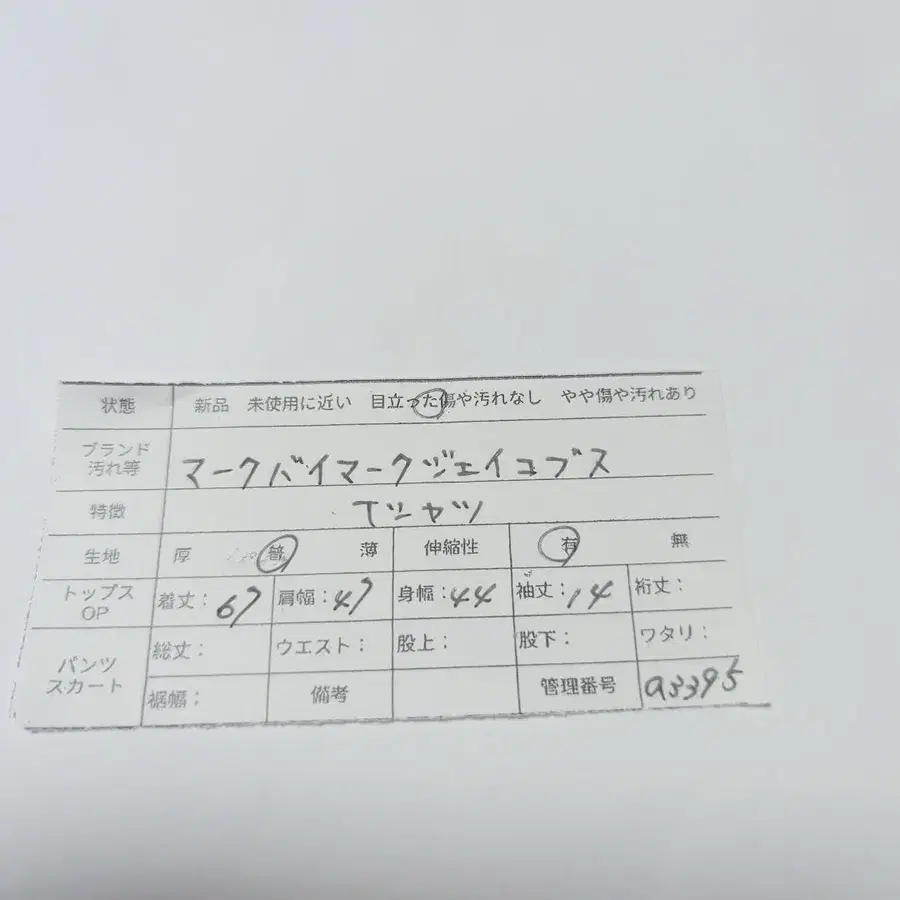 状態 新品 未使用に近い 目立った傷や汚れなし やや傷や汚れあり
ブランド
汚れ等 マークバイマークジェイコブス
特徴 Tシャツ
生地 厚 普 薄 伸縮性 有 無
トップス
OP 着丈: 67 肩幅: 47 身幅: 44 袖丈: 14 裄丈:
パンツ
スカート 総丈: ウエスト: 股上: 股下: ワタリ:
裾幅: 備考 管理番号 a3395